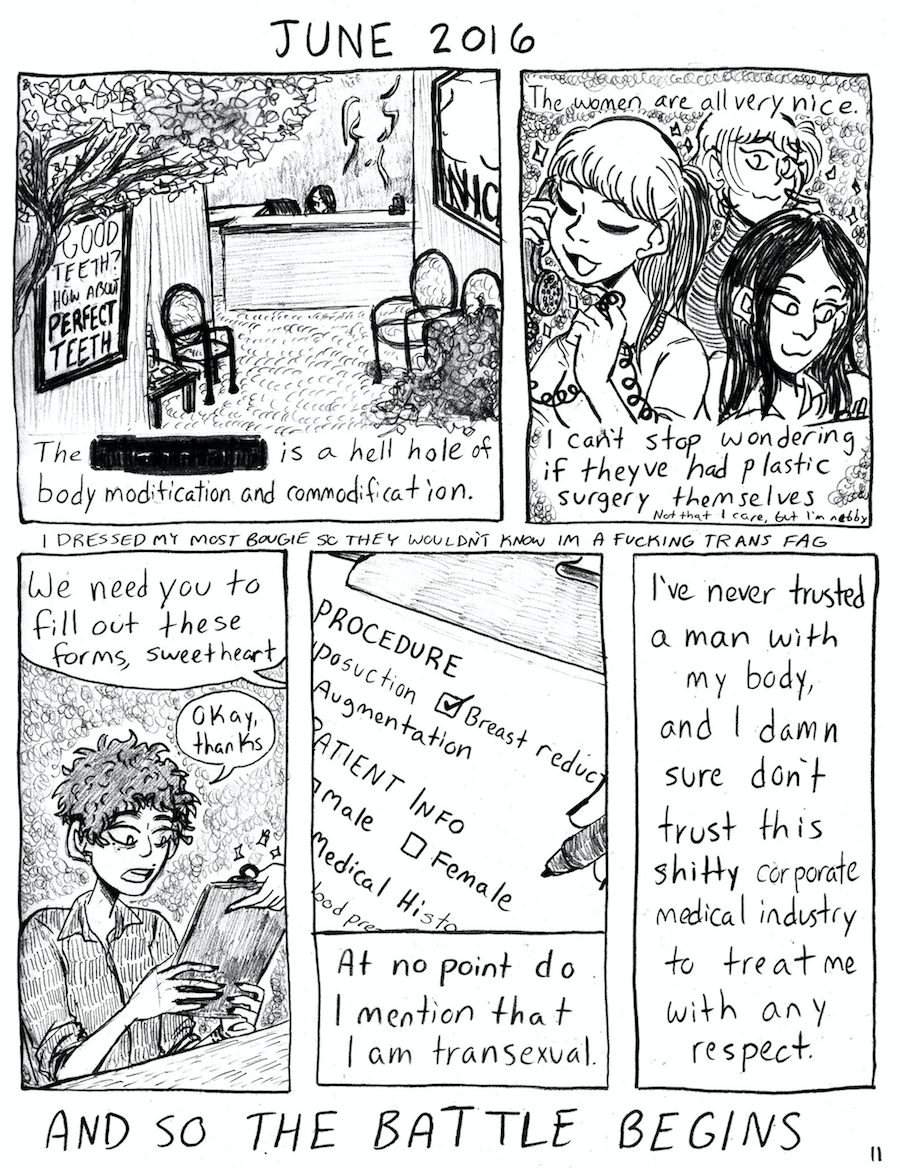 JUNE 2016
GOOD
TEETH?
HOW ABOUT
PERFECT
TEETH
NIC
The is a hell hole of
body modification and commodification.
The women are all very nice.
I can't stop wondering
if theyve had plastic
surgery themselves
Not that I care, but I'm nebby
I DRESSED MY MOST BOUGIE SO THEY WOULDN'T KNOW IM A FUCKING TRANS FAG
We need you to
fill out these
forms, sweetheart
Okay,
thanks
PROCEDURE
posuction Breast reduc
Augmentation
PATIENT INFO
male Female
Medical Histo
ood pre
At no point do
I mention that
I am transexual.
I've never trusted
a man with
my body,
and I damn
sure don't
trust this
shitty corporate
medical industry
to treat me
with any
respect.
AND SO THE BATTLE BEGINS
11